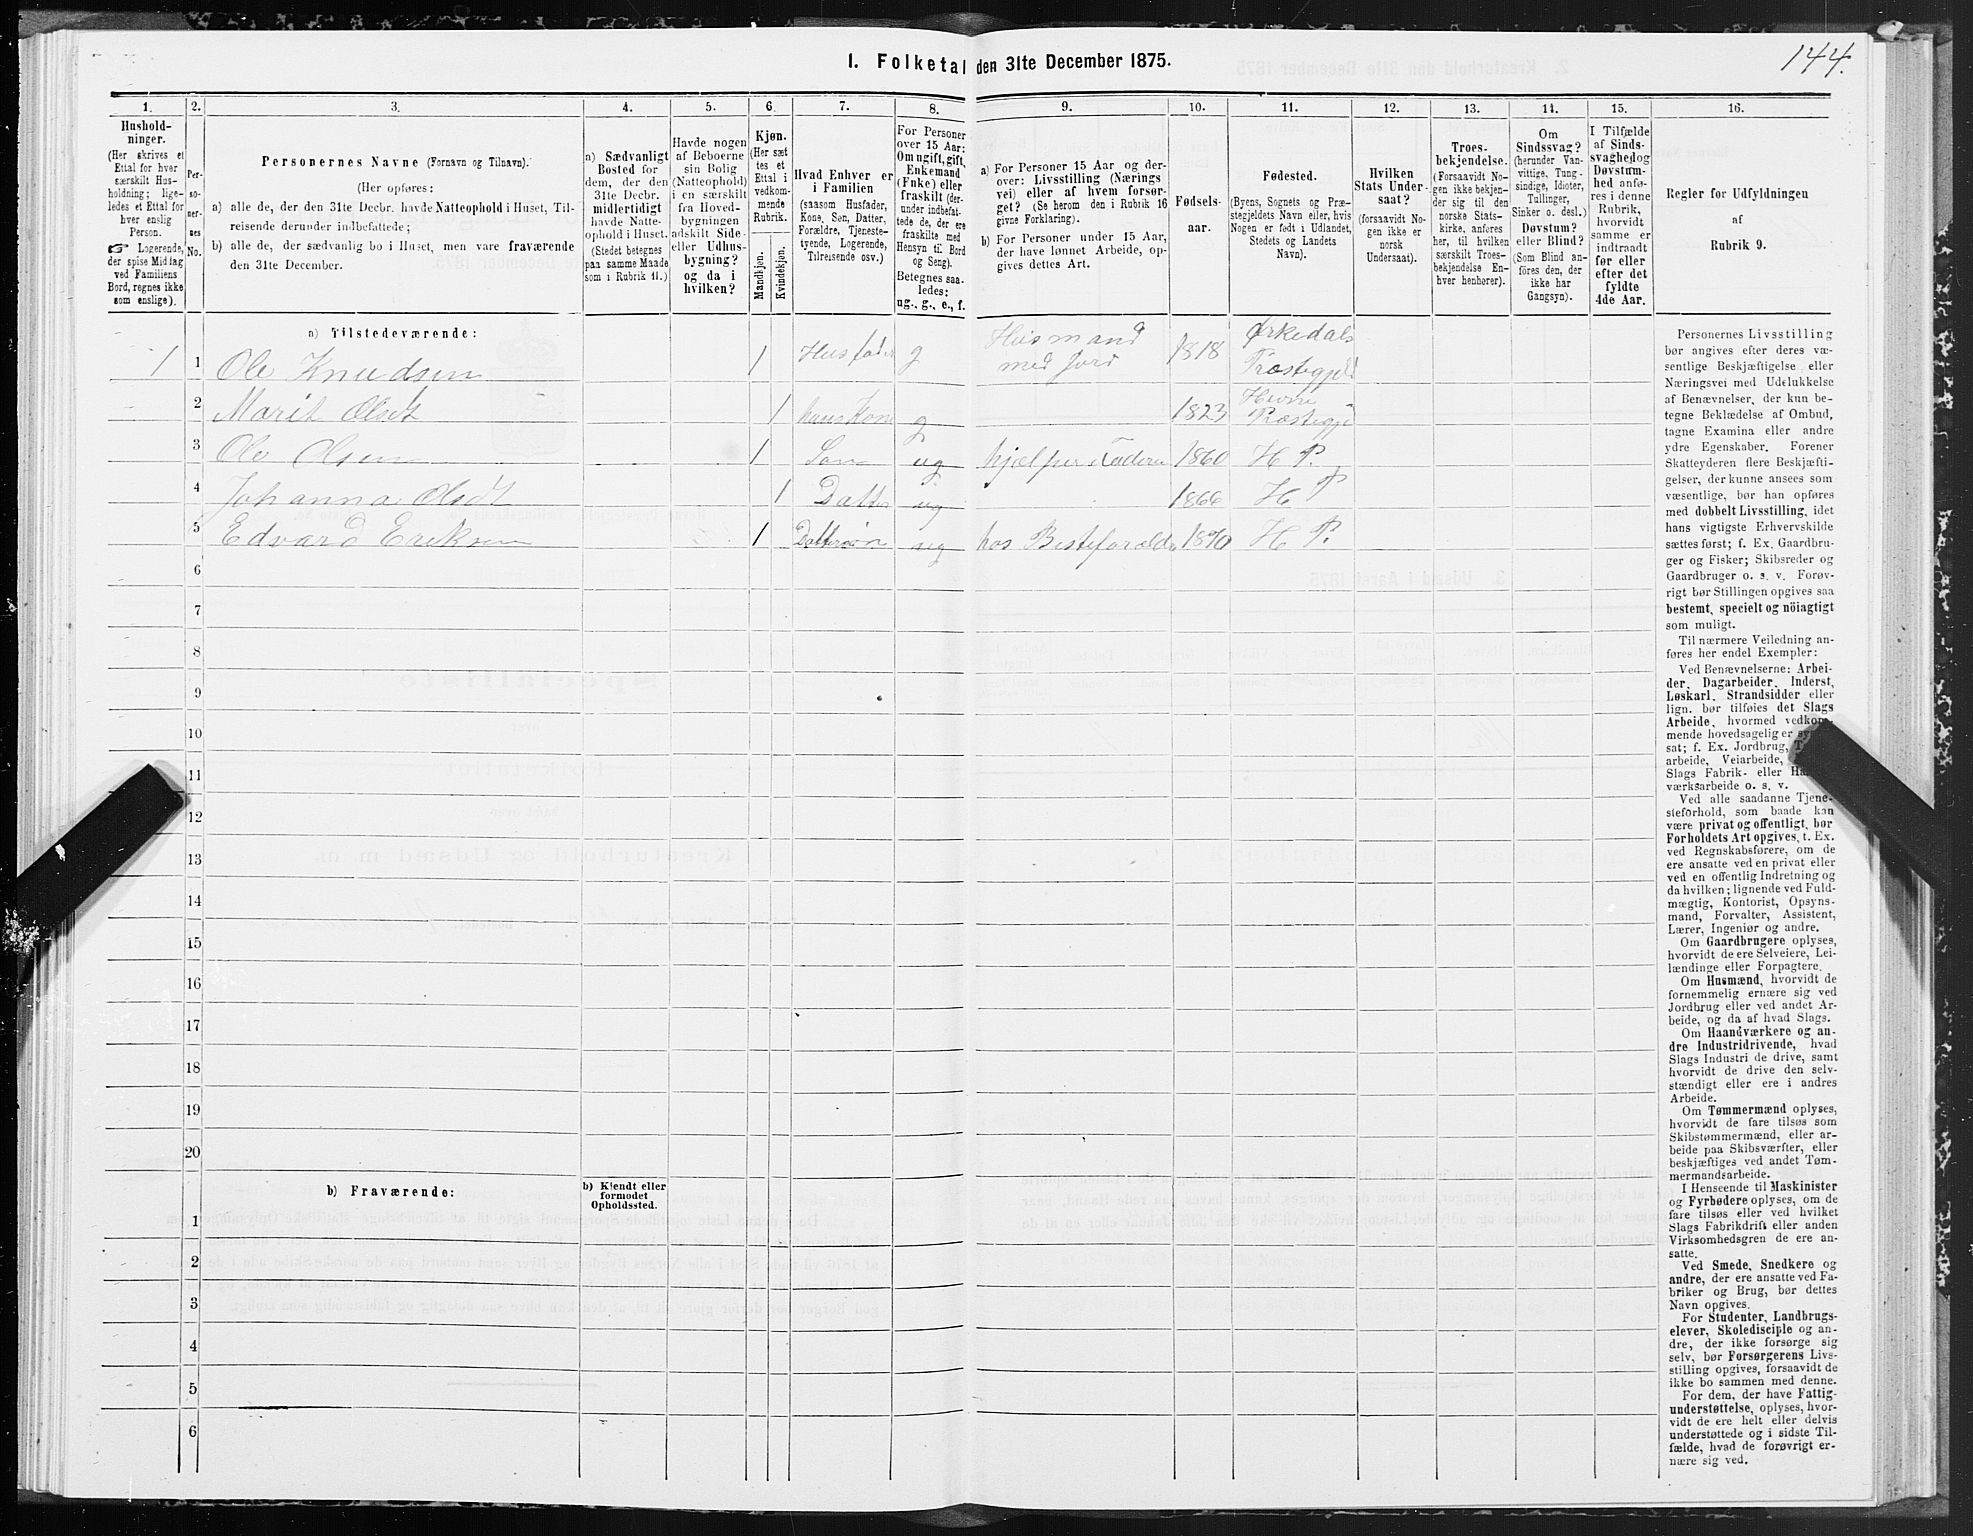 144.
I. Folketal den 31te December 1875.
1. 2. 3. 4. 5. 6. 7. 8. 9. 10. 11. 12. 13. 14. 15. 16.
Hushold-
ninger.
(Her skrives et
Ettal for hver
særskilt Hus-
holdning; lige-
ledes et Ettal for
hver enslig
Person.
☞ Logerende,
der spise Middag
ved Familiens
Bord, regnes ikke
som enslige).
Per-
so-
ner-
nes
No.
Personernes Navne (Fornavn og Tilnavn).
(Her opføres:
a) alle de, der den 31te Decbr. havde Natteophold i Huset, Til-
reisende derunder indbefattede;
b) alle de, der sædvanlig bo i Huset, men vare fraværende
den 31te December.
a) Sædvanligt
Bosted for
dem, der den
31te Decbr.
midlertidigt
havde Natte-
ophold i Huset.
(Stedet betegnes
paa samme Maade
som i Rubrik 11.)
Havde nogen
af Beboerne
sin Bolig
(Natteophold)
i en særskilt
fra Hoved-
bygningen
adskilt Side-
eller Udhus-
bygning?
og da i
hvilken?
Kjøn.
(Her sæt-
tes et
Ettal i
vedkom-
mende
Rubrik.
Mandkjøn.
Kvindekjøn.
Hvad Enhver er
i Familien
(saasom Husfader,
Kone, Søn, Datter,
Forældre, Tjeneste-
tyende, Logerende,
Tilreisende osv.)
For Personer
over 15 Aar:
Om ugift, gift,
Enkemand
(Enke) eller
fraskilt (der-
under indbefat-
tede de, der ere
fraskilte med
Hensyn til Bord
og Seng).
Betegnes saa-
ledes:
ug., g., e., f.
a) For Personer 15 Aar og der-
over: Livsstilling (Nærings
vei) eller af hvem forsør-
get? (Se herom den i Rubrik 16
givne Forklaring).
b) For Personer under 15 Aar,
der have lønnet Arbeide, op-
gives dettes Art.
Fødsels-
aar.
Fødested.
(Byens, Sognets og Præ-
stegjeldets Navn eller, hvis
Nogen er født i Udlandet,
Stedets og Landets
Navn).
Hvilken
Stats Under-
saat?
(forsaavidt No-
gen ikke er
norsk
Undersaat).
Troes-
bekjendelse.
(Forsaavidt No-
gen ikke bekjen-
der sig til den
norske Stats-
kirke, anføres
her, til hvilken
særskilt Troes-
bekjendelse En-
hver henhører).
Om
Sindssvag?
(herunder Van-
vittige, Tung-
sindige, Idioter,
Tullinger,
Sinker o. desl.)
Døvstum?
eller Blind?
(Som Blind an-
føres den, der
ikke har
Gangsyn).
I Tilfælde
af Sinds-
svaghed og
Døvstum-
hed anfø-
res i denne
Rubrik,
hvorvidt
samme er
indtraadt
før eller
efter det
fyldte
4de Aar.
Regler for Udfyldningen
af
Rubrik 9.
a) Tilstedeværende:
1 1 Ole Knudsen 1 Husfader g Husmand med Jord 1818 Ørkedals Præstegjeld
2 Marit Olsdt 1 hans Kone g 1823 Hevne Præstegje
3 Ole Olsen 1 Søn ug hjælper Faderen 1860 H P.
4 Johanna Olsdt 1 Datter ug 1866 H P
5 Edvard Eriksen 1 Dattersøn ug hos Besteforældre 1870 H P.
6
7
8
9
10
11
12
13
14
15
16
17
18
19
20
b) Fraværende:
b) Kjendt eller
formodet
Opholdssted.
1
2
3
4
5
6
Personernes Livsstilling
bør angives efter deres væ-
sentlige Beskjæftigelse eller
Næringsvei med Udelukkelse
af Benævnelser, der kun be-
tegne Beklædelse af Ombud,
tagne Examina eller andre
ydre Egenskaber. Forener
Skatteyderen flere Beskjæfti-
gelser, der kunne ansees som
væsentlige, bør han opføres
med dobbelt Livsstilling, idet
hans vigtigste Erhvervskilde
sættes først; f. Ex. Gaardbru-
ger og Fisker; Skibsreder og
Gaardbruger o. s. v. Forøv-
rigt bør Stillingen opgives saa
bestemt, specielt og nöiagtigt
som muligt.
Til nærmere Veiledning an-
føres her endel Exempler:
Ved Benævnelserne: Arbei-
der, Dagarbeider, Inderst,
Løskarl, Strandsidder eller
lign. bør tilføies det Slags
Arbeide, hvormed vedkom-
mende hovedsagelig er
sat; f. Ex. Jordbrug,
arbeide, Veiarbeide,
Slags Fabrik- eller
værksarbeide o. s. v.
Ved alle saadanne Tjene-
steforhold, som baade kan
være privat og offentligt, bør
Forholdets Art opgives, t. Ex.
ved Regnskabsførere, om de
ere ansatte ved en privat eller
ved en offentlig Indretning og
da hvilken; lignende ved Fuld-
mægtig, Kontorist, Opsyns-
mand, Forvalter, Assistent,
Lærer, Ingeniør og andre.
Om Gaardbrugere oplyses,
hvorvidt de ere Selveiere, Lei-
lændinge eller Forpagtere.
Om Husmænd, hvorvidt de
fornemmelig ernære sig ved
Jordbrug eller ved andet Ar-
beide, og da af hvad Slags.
Om Haandværkere og an-
dre Industridrivende, hvad
Slags Industri de drive, samt
hvorvidt de drive den selv-
stændigt eller ere i andres
Arbeide.
Om Tømmermænd oplyses,
hvorvidt de fare tilsøs som
Skibstømmermænd, eller ar-
beide paa Skibsværfter, eller
beskjæftiges ved andet Tøm-
mermandsarbeide.
I Henseende til Maskinister
og Fyrbødere oplyses, om de
fare tilsøs eller ved hvilket
Slags Fabrikdrift eller anden
Virksomhedsgren de ere an-
satte.
Ved Smede, Snedkere og
andre, der ere ansatte ved Fa-
briker og Brug, bør dettes
Navn opgives.
For Studenter, Landbrugs-
elever, Skoledisciple og an-
dre, der ikke forsørge sig
selv, bør Forsørgerens Livs-
stilling opgives, forsaavidt de
ikke bo sammen med denne.
For dem, der have Fattig-
understøttelse, oplyses, hvor-
vidt de ere helt eller delvis
understøttede og i sidste Til-
fælde, hvad de forøvrigt er-
nære sig ved.